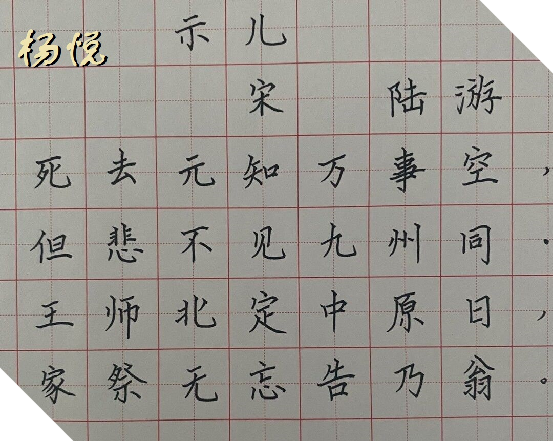 杨悦
示儿
宋 陆游
死去元知万事空，
但悲不见九州同．
王师北定中原日，
家祭无忘告乃翁。